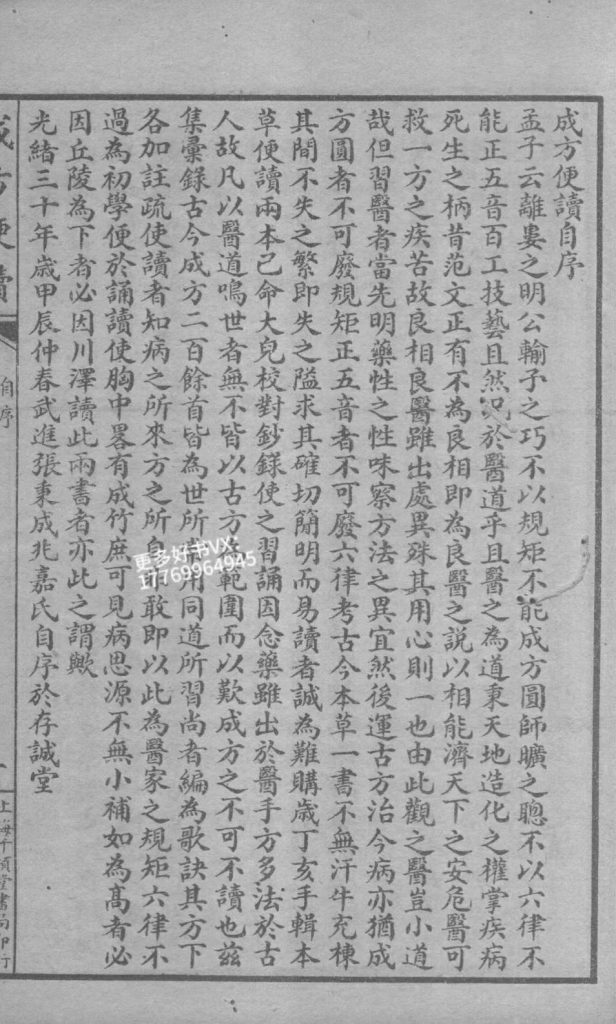 成方便讀自序
孟子云離婁之明公輸子之巧不以規矩不能成方圓師曠之聰不以六律不
能正五音百工技藝且然況於醫道乎且醫之為道秉天地造化之權掌疾病
死生之柄昔范文正有不為良相即為良醫之說以相能濟天下之安危醫可
救一方之疾苦故良相良醫雖出處異殊其用心則一也由此觀之醫豈小道
哉但習醫者當先明藥性之性味察方法之異宜然後運古方治今病亦猶成
方圓者不可廢規矩正五音者不可廢六律考古今本草一書不無汗牛充棟
其間不失之繁即失之隘求其確切簡明而易讀者誠為難購歲丁亥手輯本
草便讀兩本已命大兒校對鈔錄使之習誦因念藥雖出於醫手方多法於古
人故凡以醫道鳴世者無不皆以古方範圍而以歎成方之不可不讀也茲
集彙錄古今成方二百餘首皆為世所常用同道所習尚者編為歌訣其方下
各加註疏使讀者知病之所來方之所自敢即以此為醫家之規矩六律不
過為初學便於誦讀使胸中畧有成竹庶可見病思源不無小補如為高者必
因丘陵為下者必因川澤讀此兩書者亦此之謂歟
光緒三十年歲甲辰仲春武進張秉成兆嘉氏自序於存誠堂
成方便讀
自序
上海千頃堂書局印行
更多好书VX
17769964945